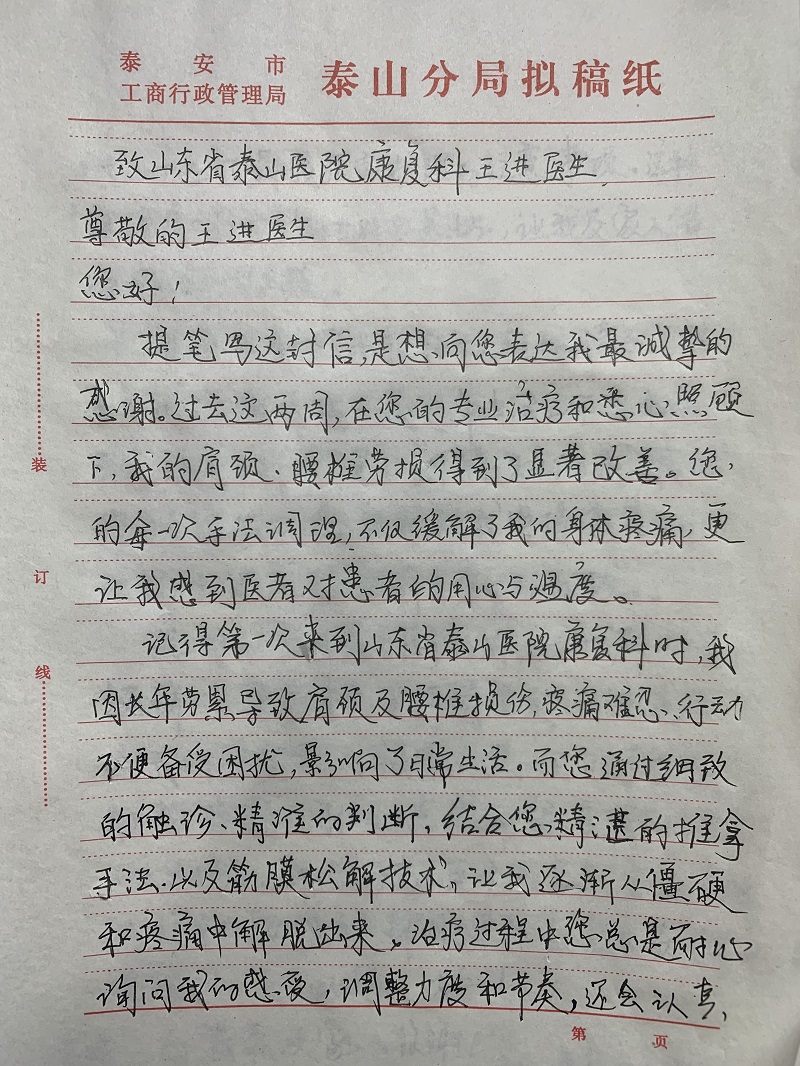 泰安市
工商行政管理局 泰山分局拟稿纸
致山东省泰山医院康复科王进医生
尊敬的王进医生
您好！
提笔写这封信，是想向您表达我最诚挚的
感谢。过去这两周，在您的专业治疗和悉心照顾
下，我的肩颈、腰椎劳损得到了显著改善。您
的每一次手法调理，不仅缓解了我的身体疼痛，更
让我感到医者对患者的用心与温度。
记得第一次来到山东省泰山医院康复科时，我
因长年劳累导致肩颈及腰椎损伤，疼痛难忍、行动
不便备受困扰，影响了日常生活。而您通过细致
的触诊、精准的判断，结合您精湛的推拿
手法、以及筋膜松解技术，让我逐渐从僵硬
和疼痛中解脱出来。治疗过程中您总是耐心
询问我的感受，调整力度和节奏，还会认真
装
订
线
第 页